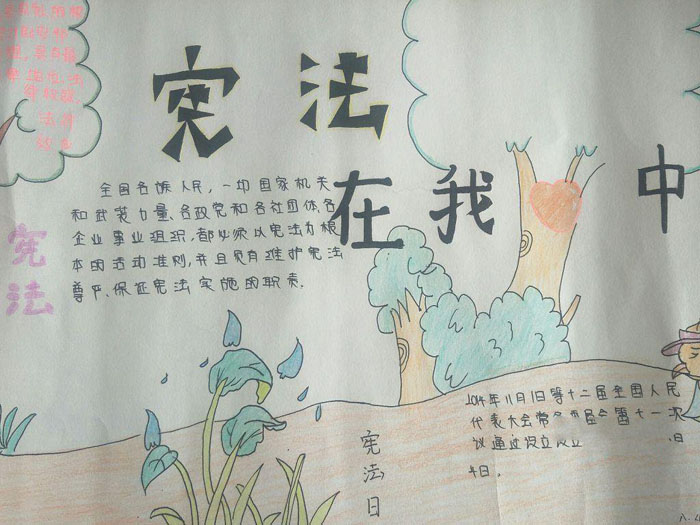 宪法
在我 中
全国各族人民，一切国家机关
和武装力量、各政党和各社团体、各
企业事业组织，都必须以宪法为根
本的活动准则，并且负有维护宪法
尊严、保证宪法实施的职责．
宪法
2014年11月1日第十二届全国人民
代表大会常 会第十一次
议通过设立 日
日．
宪法日